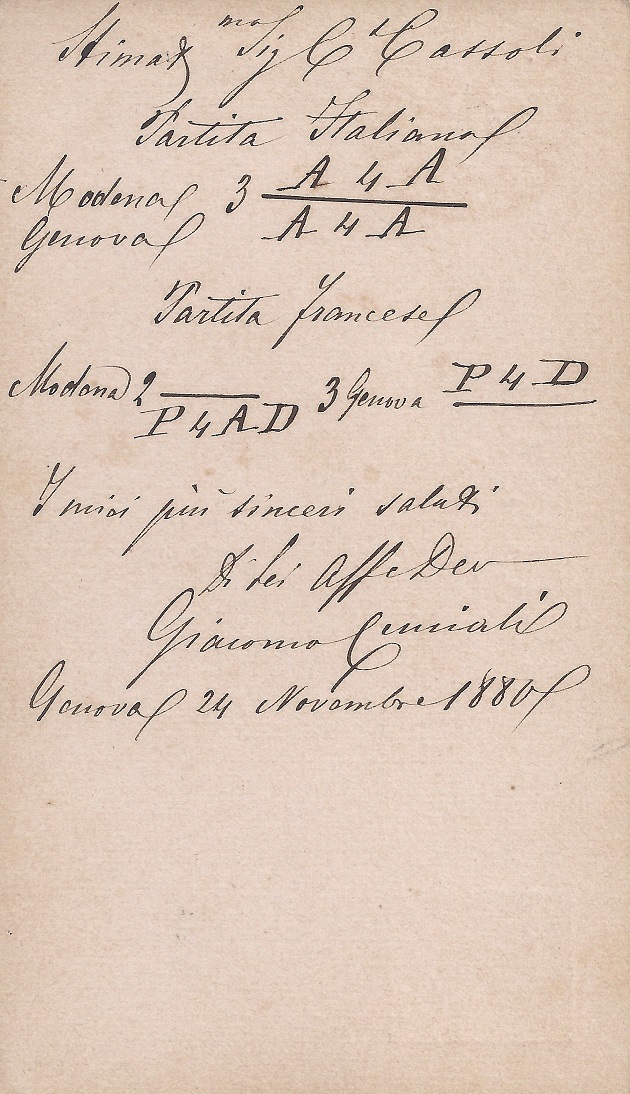 Stimat mo Sig C t Cassoli
Partita Italiana
Modena 3 A 4 A
Genova A 4 A
Partita francese
Modena 2 P 4 A D 3 Genova P 4 D
I miei più sinceri saluti
Di Lei Aff e Dev
Giacomo
Genova 24 Novembre 1880